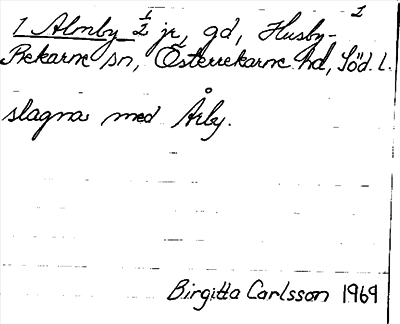 1 Almby 1/2 jr, gd, Husby- 1
Rekarne sn, Österrekarne hd, Söd. l.
slagna med Årby.
Birgitta Carlsson 1969